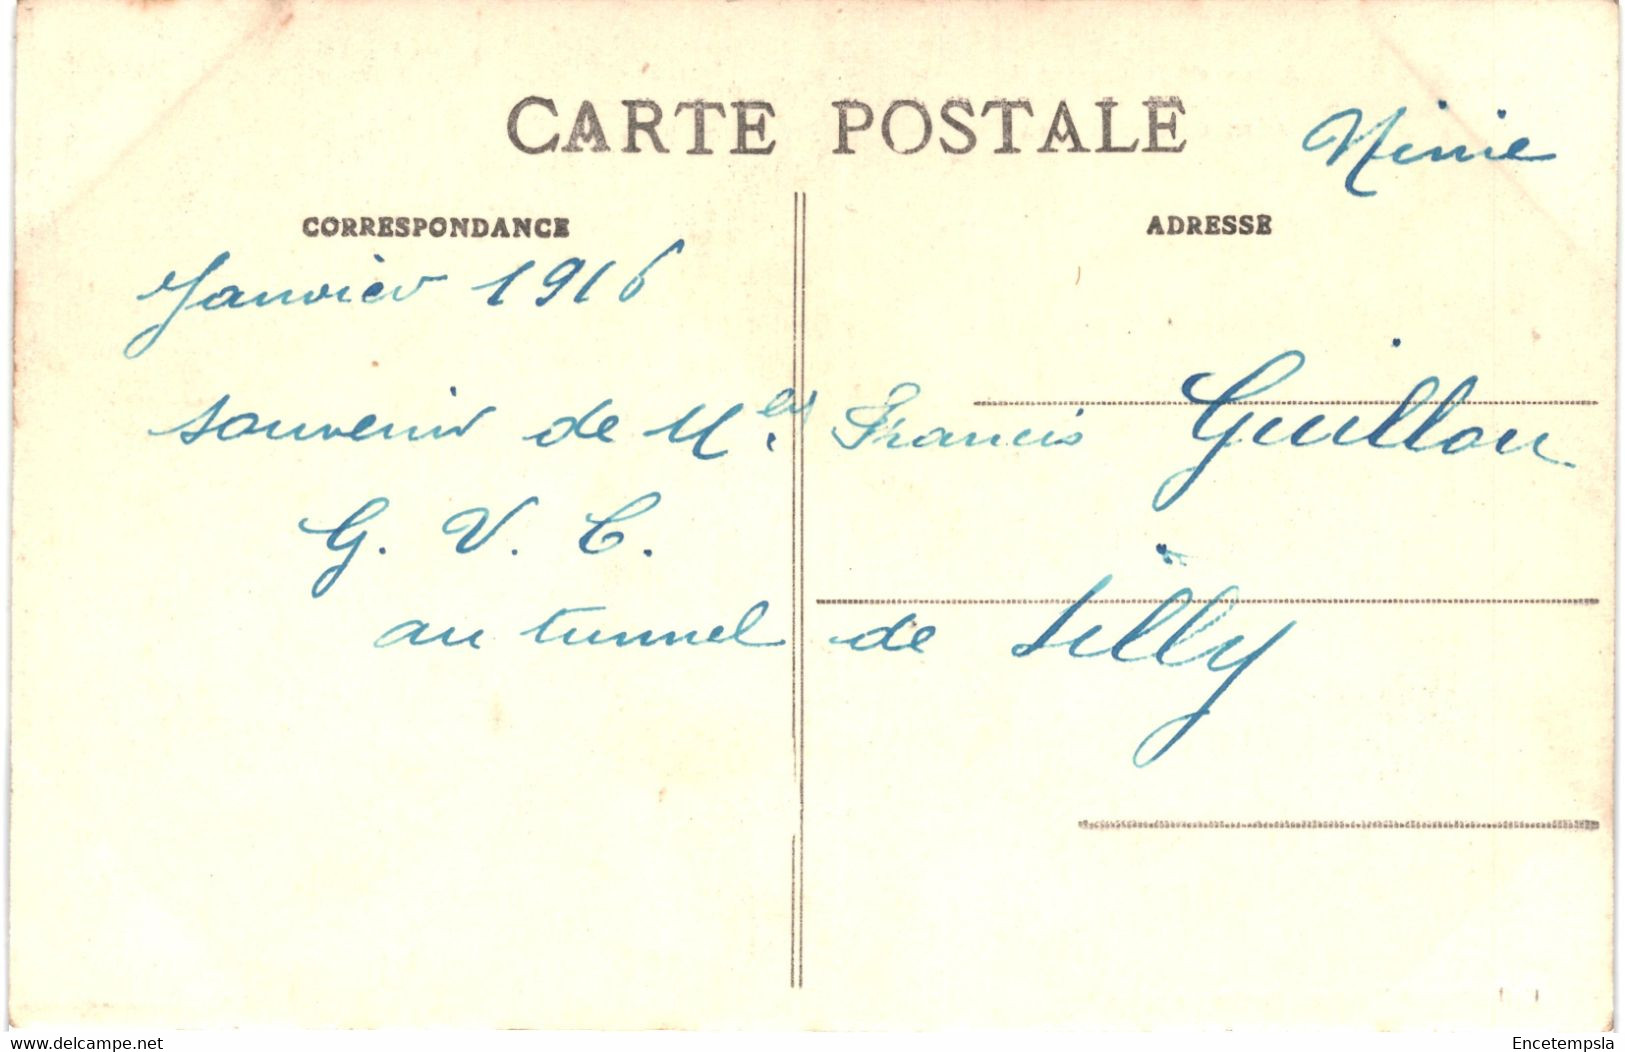 CARTE POSTALE
Ninie
CORRESPONDANCE
ADRESSE
Janvier 1916
souvenir de Mrs. Francis Guillou
G. V. C.
au tunnel de Silly
www.delcampe.net
Encetempsla